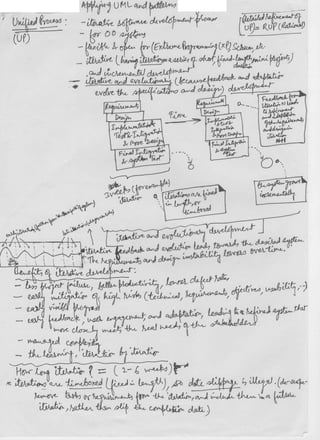 Applying UML and patterns
Unified Process :
(UP)
- iterative software development process
- for OO systems
Detailed refinement of
UP = RUP (Rational)
- flexible & open for (Extreme Programming (XP), Scrum, etc.
- iterative (having iterations = series of short, fixed-length mini projects)
and incremental development
= iterative and evolutionary (because feedback and adaptation
evolve the specifications and design) development
Requirements
Design
Implementation &
Test & Integration
& More Design
Final Integration
& system Test
Time
Requirements
Design
Implementation
Test &
Integration
& More Design
Final Integration
& System
Test
Feedback from
iteration N leads
to refinement
and adaptation
of the requirements
and design in
iteration
N+1
3 weeks (for example)
iteration
iterations are fixed
in length, or
timeboxed
the system grows
incrementally
iterative and evolutionary development
* iterative feedback and evolution leads towards the desired system.
* The requirements and design instability lowers over time.
Benefits of iterative development:
- less project failure, better productivity, lower defect rates
- early mitigation of high risks (technical, requirements, objectives, usability, -)
- early visible progress
- early feedback, user engagement, and adaptation, leading to a refined system that
more closely meets the real needs of the stakeholders
- managed complexity
- the learning, iteration by iteration
How long iteration ? = (2-6 weeks)
* iterations are timeboxed (fixed in length), so date slippage is illegal. (de-scope-
remove tasks or requirements from the iteration, and include them in a future
iteration, rather than slip the completion date)